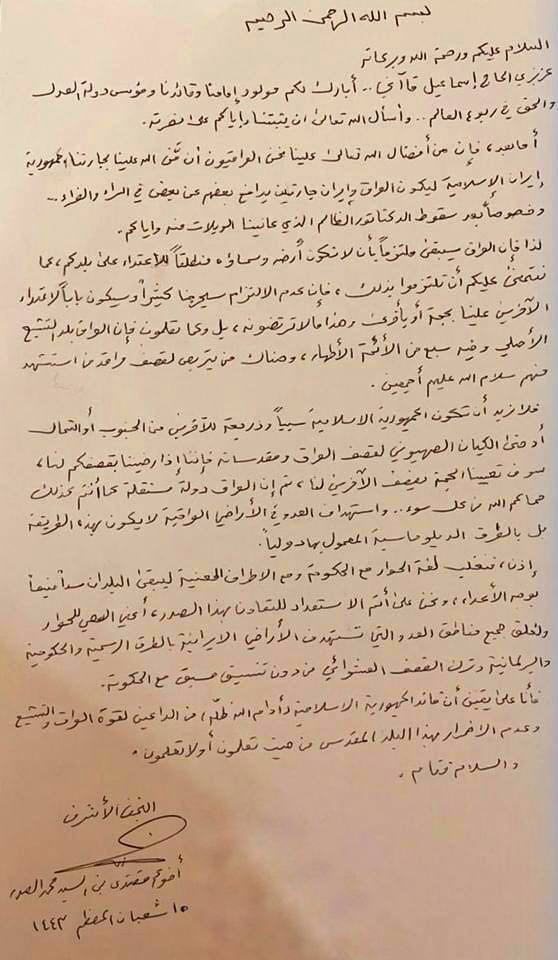 بسم الله الرحمن الرحيم
السلام عليكم ورحمة الله وبركاته
عزيزي الحاج إسماعيل قاآني .. أبارك لكم مولود إمامنا وقائدنا ومؤسس دولة العدل
والحق في ربوع العالم .. وأسأل الله تعالى ان يثبتنا وإياكم على نصرته.
أما بعد، فإن من أفضال الله تعالى علينا نحن العراقيون أن منّ الله علينا بجارتنا الجمهورية
إيران الإسلامية ليكون العراق وإيران جارتين يدافع بعضهم عن بعض في السراء والضراء ..
وخصوصاً بعد سقوط الدكتاتور الظالم الذي عانينا الويلات منه وإياكم.
لذا فإن العراق سيبقى ملتزماً بأن لا تكون أرضه وسماؤه منطلقاً للاعتداء على بلدكم، كما
نتمنى عليكم أن تلتزموا بذلك، فإن عدم الالتزام سيحرجنا كثيراً وسيكون باباً لاعتداء
الآخرين علينا بحجة أو بأخرى وهذا ما لا ترتضونه، بل وكما تعلمون فإن العراق بلد التشيع
الأصلي وفيه سبع من الأئمة الأطهار، وهناك من يتربص لقصف مراقد من استشهد
منهم سلام الله عليهم أجمعين.
فلا نريد أن تكون الجمهورية الاسلامية سبباً وذريعة للآخرين من الجنوب أو الشمال
أو حتى الكيان الصهيوني لقصف العراق ومقدساته فإننا إذا رضينا بقصفكم لنا،
سوف تعيينا الحجة بقصف الآخرين لنا، ثم إن العراق دولة مستقلة كما أنتم كذلك
حماكم الله من كل سوء .. واستهداف العدو في الأراضي العراقية لا يكون بهذه الطريقة
بل بالطرق الدبلوماسية المعمول بها دولياً.
إذن، فنغلب لغة الحوار مع الحكومة ومع الاطراف المعنية ليبقى البلدان سداً منيعاً
بوجه الأعداء، ونحن على أتم الاستعداد للتعاون بهذا الصدد، أعني السعي للحوار
ولغلق جميع مناطق العدو التي تستهدف الأراضي الايرانية بالطرق الرسمية والحكومية
والبرلمانية وترك القصف العشوائي من دون تنسيق مسبق مع الحكومة.
فأنا على يقين أن قائد الجمهورية الاسلامية (أدام الله ظله) من الداعين لقوة العراق والتشيع
وعدم الاضرار بهذا البلد المقدس من حيث تعلمون أو لا تعلمون.
والسلام ختام.
النجف الأشرف
أخوكم مقتدى بن السيد محمد الصدر
١٥ شعبان المعظم ١٤٤٣